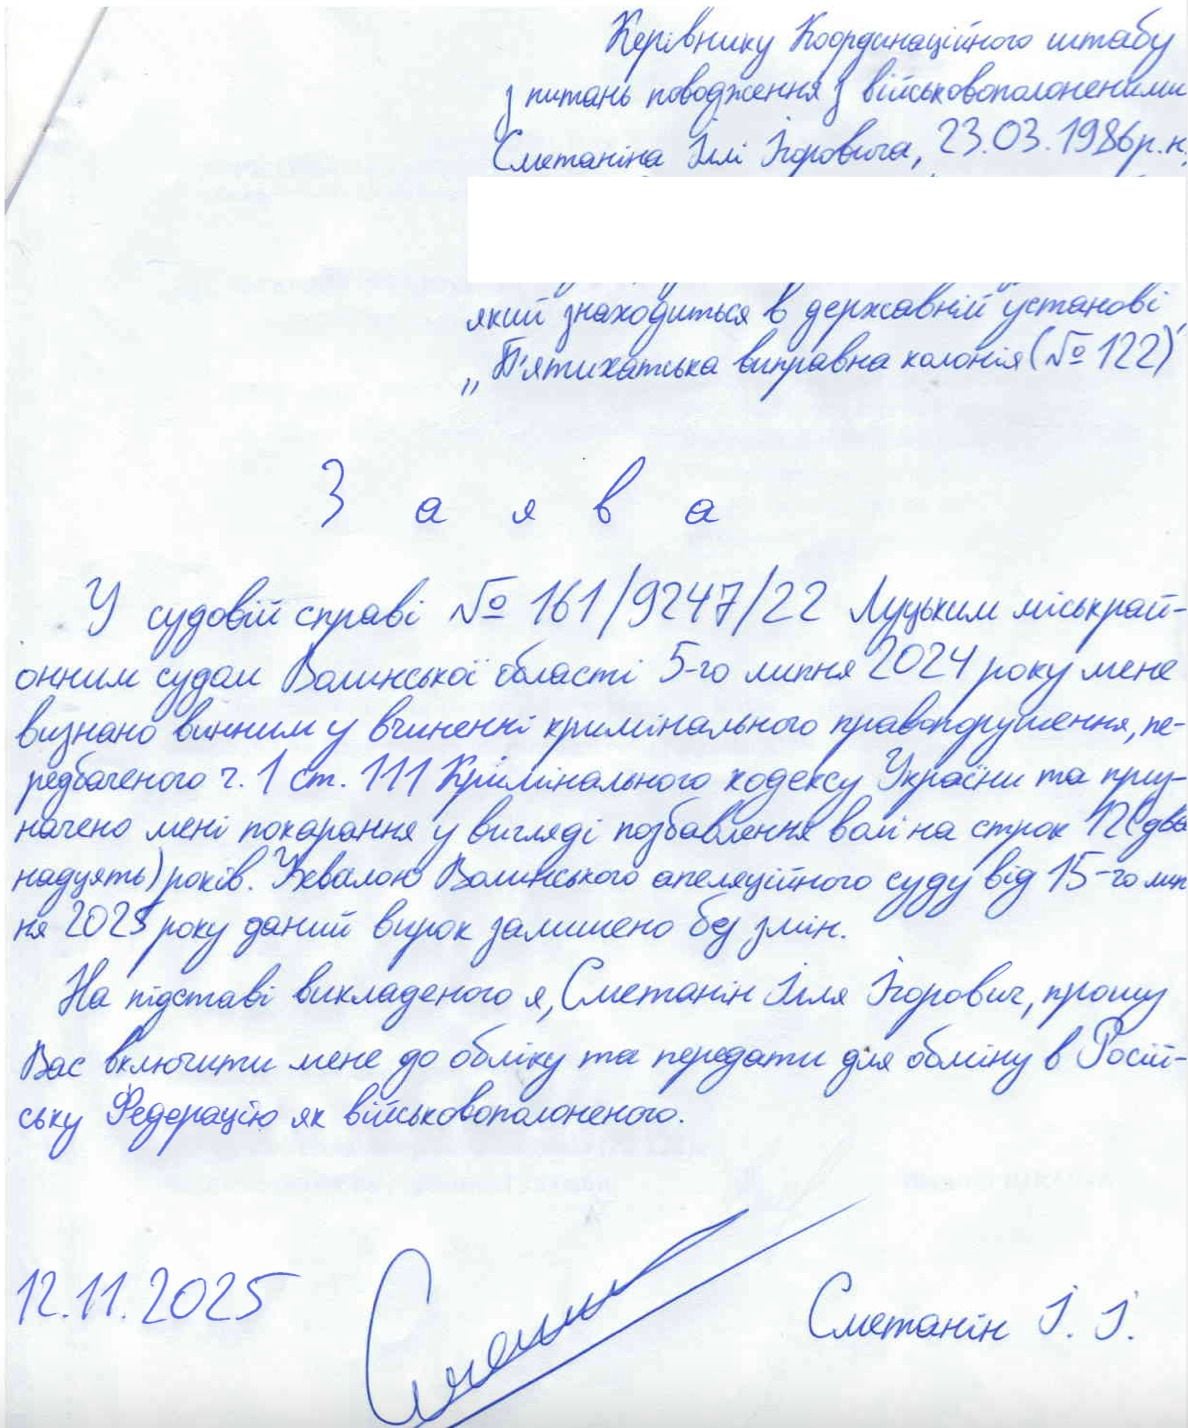 Керівнику Координаційного штабу
з питань поводження з військовополоненими
Сметаніна Іллі Ігоровича, 23.03.1986р.н,
який знаходиться в державній установі
„П'ятихатська виправна колонія (№ 122)"
Заява
У судовій справі № 161/9247/22 Луцьким міськрай-
онним судом Волинської області 5-го липня 2024 року мене
визнано винним у вчиненні кримінального правопорушення, пе-
редбаченого ч. 1 ст. 111 Кримінального кодексу України та приз-
начено мені покарання у вигляді позбавлення волі на строк 12 (два
надцять) років. Ухвалою Волинського апеляційного суду від 15-го лип
ня 2025 року даний вирок залишено без змін.
На підставі викладеного я, Сметанін Ілля Ігорович, прошу
Вас включити мене до обліку та передати для обміну в Росій-
ську Федерацію як військовополоненого.
12.11.2025
Сметанін І. І.